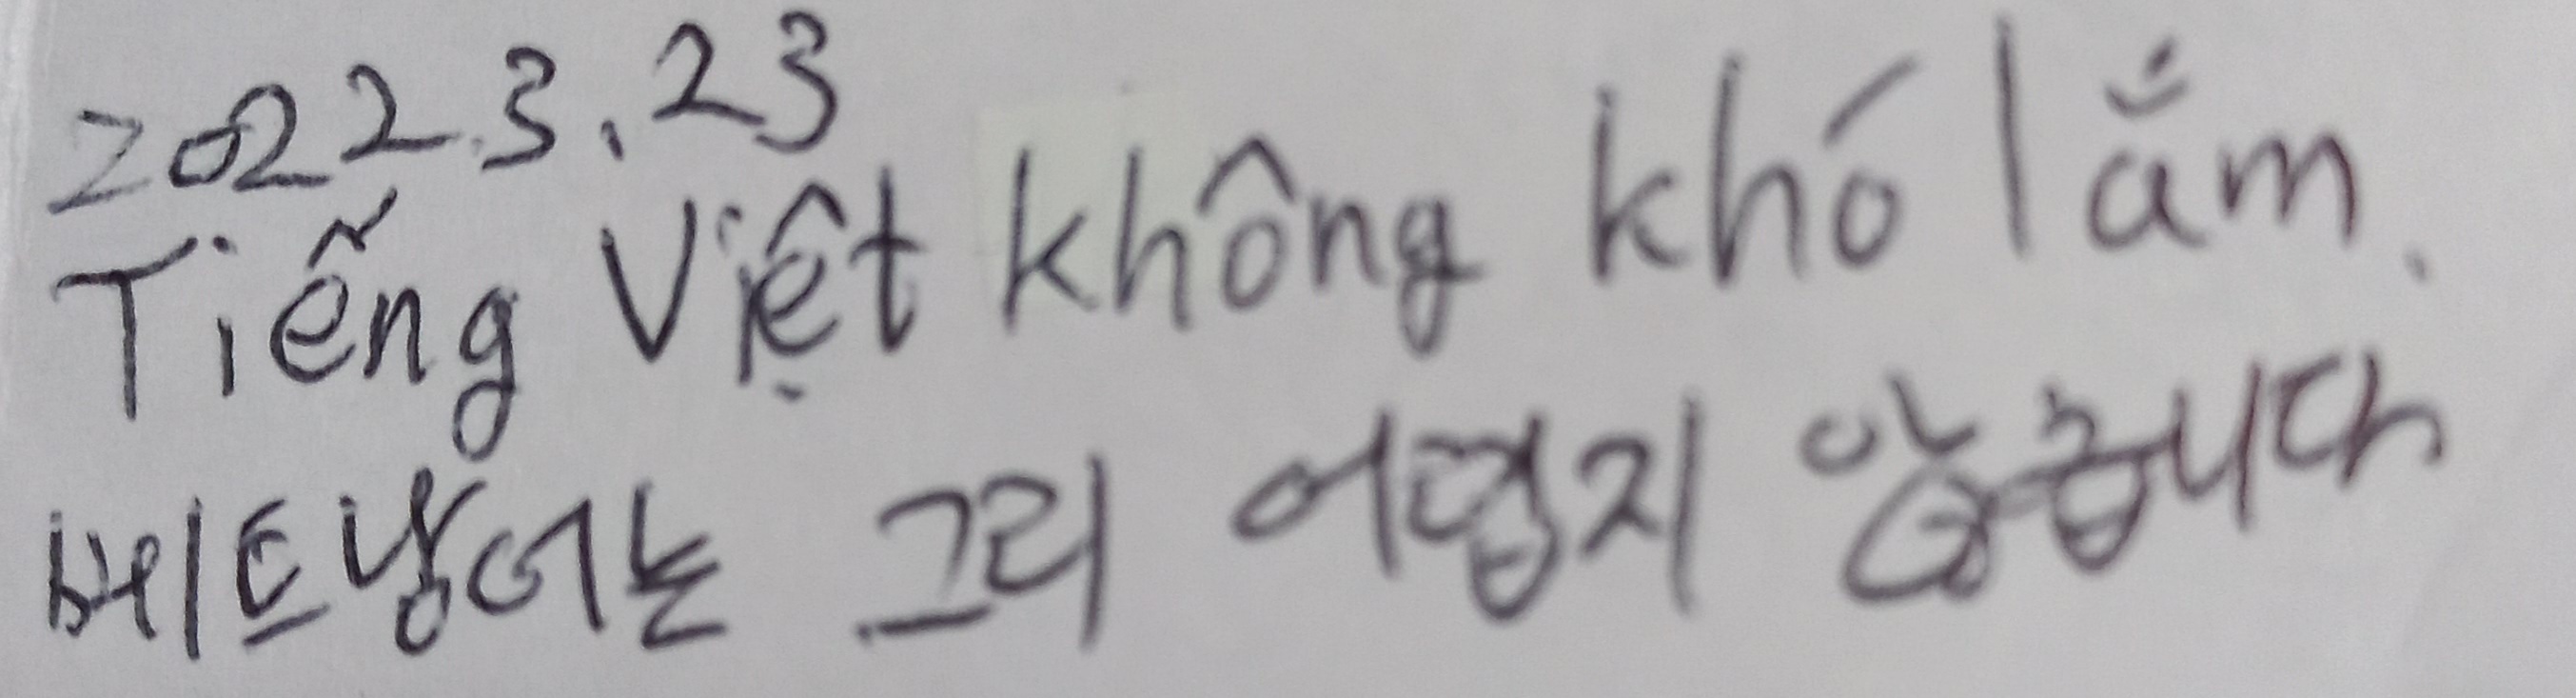 2022.3.23
Tiếng Việt không khó lắm.
베트낭어는 그리 어렵지 않습니다